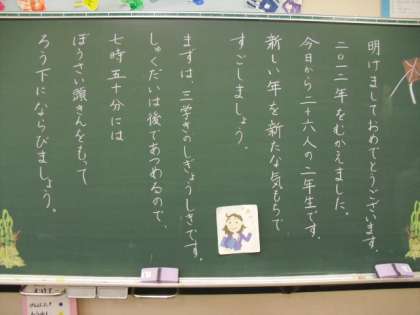 明けましておめでとうございます。
二〇一二年をむかえました。
今日から二十六人の二年生です。
新しい年を新たな気もちで
すごしましょう。
まずは、三学きのしぎょうしきです。
しゅくだいは後であつめるので、
七時五十分には
ぼうさい頭きんをもって
ろう下にならびましょう。